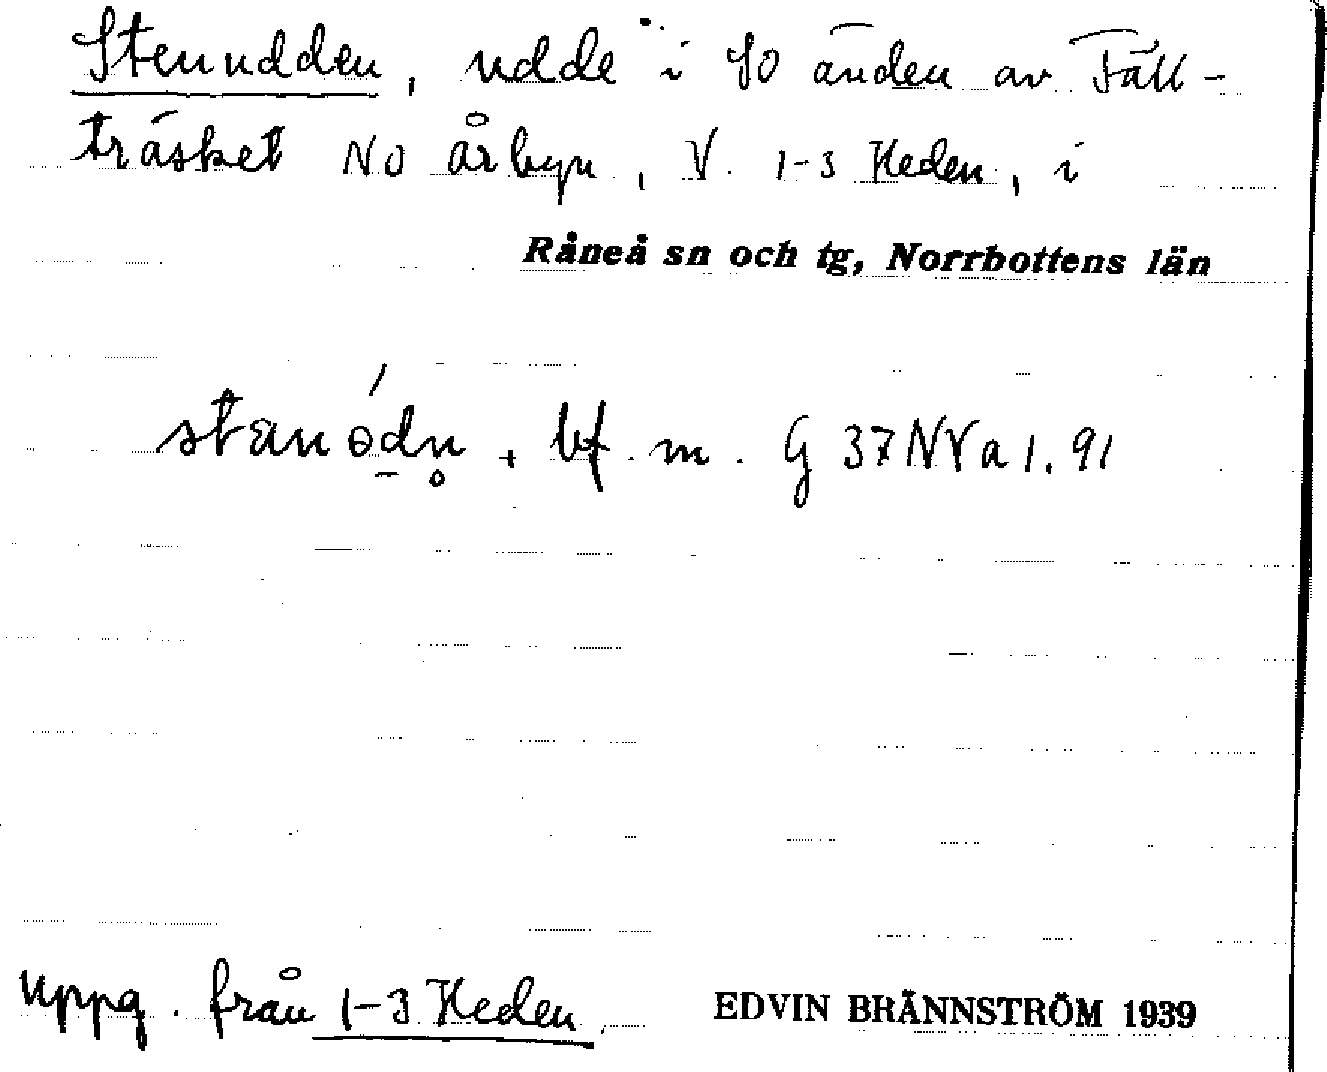 Stenudden, udde i SO änden av Fäll-
träsket NO Årbyn, V. 1-3 Heden, i
Råneå sn och tg, Norrbottens län
bf. m. G 37 NV a 1. 91
uppg. från 1-3 Heden
EDVIN BRÄNNSTRÖM 1939